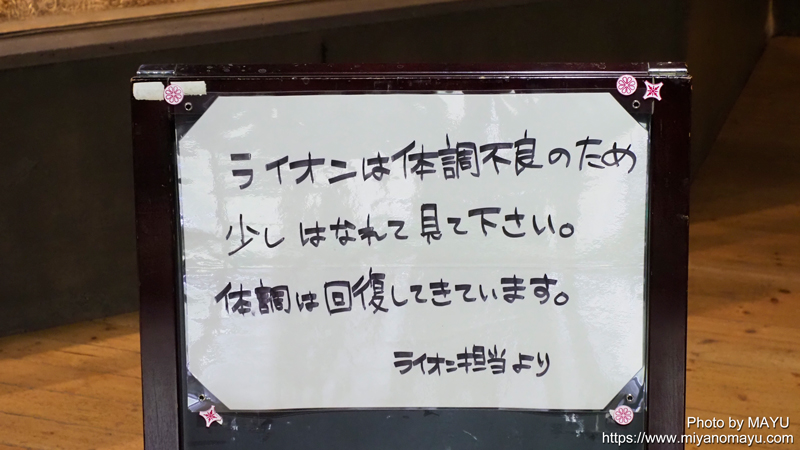 ライオンは体調不良のため
少し はなれて 見て下さい。
体調は回復してきています。
ライオン担当より
Photo by MAYU
https://www.miyanomayu.com